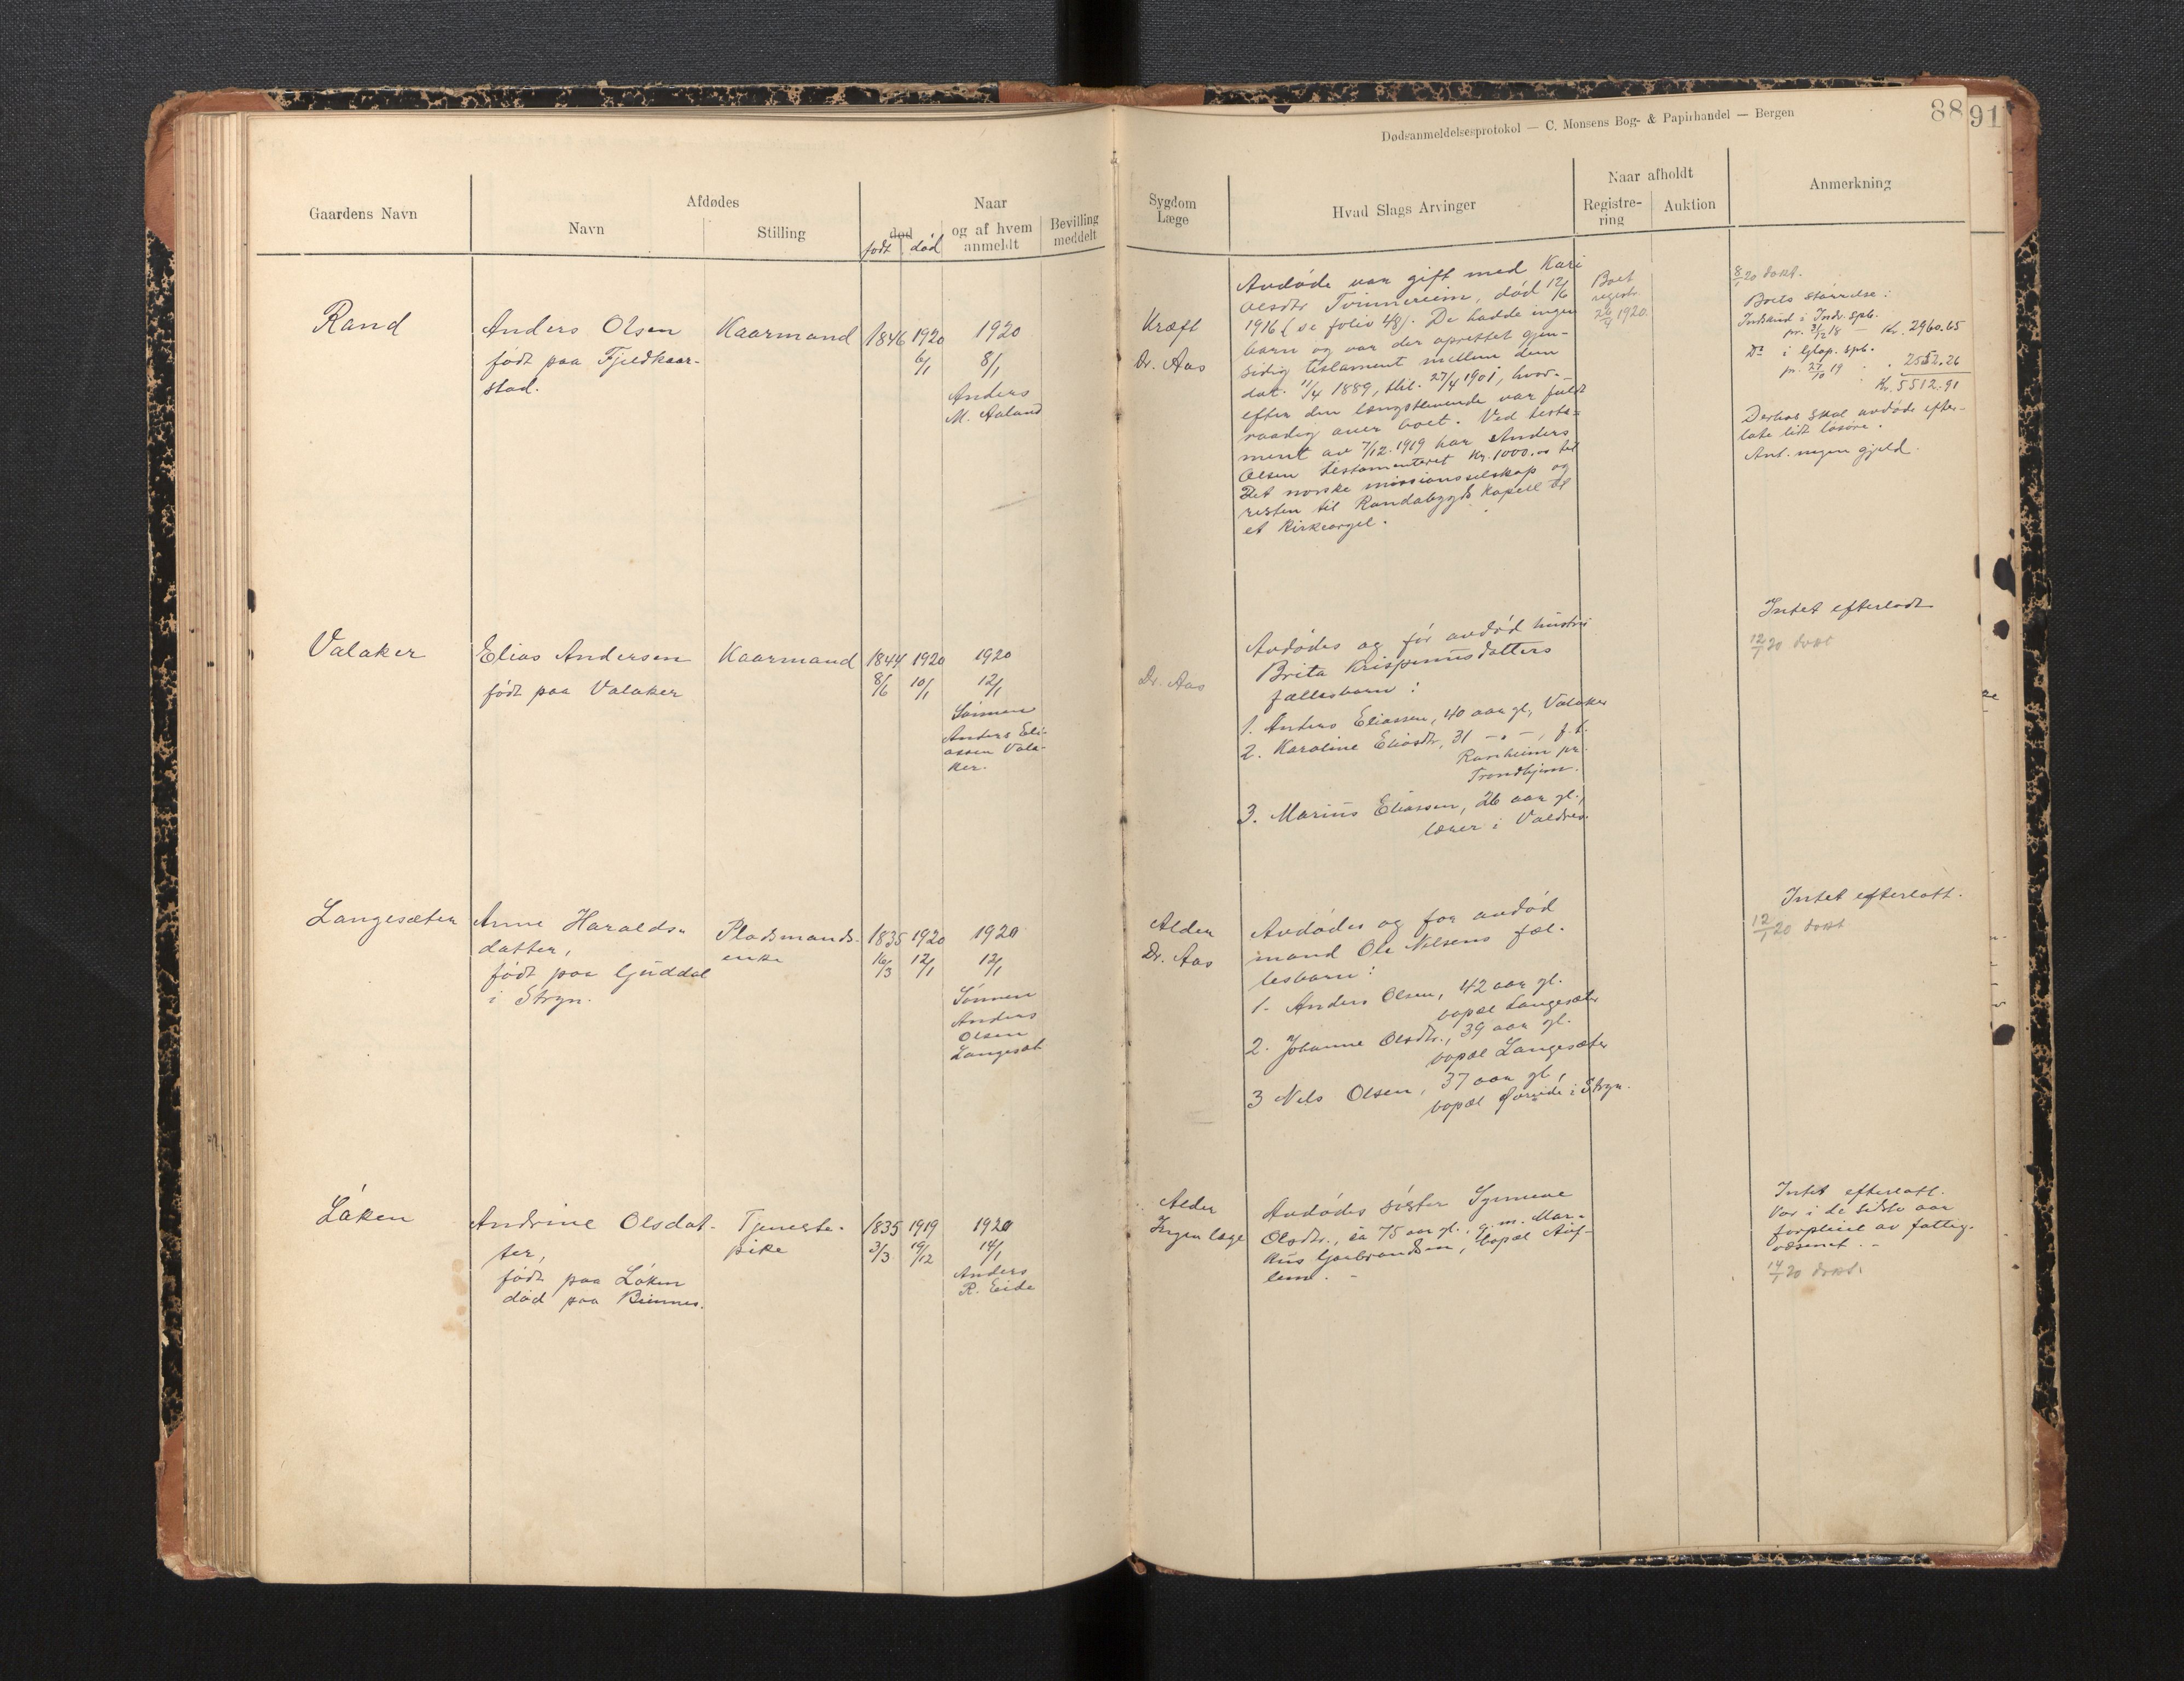 Dødsanmeldelsesprotokol — C. Monsens Bog- & Papirhandel — Bergen
88
91
Gaardens Navn
Afdødes
Navn
Stilling
Naar
død
født død
og af hvem
anmeldt
Bevilling
meddelt
Sygdom
Læge
Hvad Slags Arvinger
Naar afholdt
Registre-
ring
Auktion
Anmerkning
Rand
Anders Olsen
født paa Fjeldkaar-
stad.
Kaarmand
1846 1920
6/1
1920
8/1
Anders
M. Aaland
Kræft
Dr. Aas
Avdøde var gift med Kari
Olsdtr Tvinnereim, død 12/6
1916 (se folio 48). De hadde ingen
barn og var der oprettet gjen-
sidig testament mellem dem
dat. 11/4 1889, thl. 27/4 1901, hvor-
efter den længstlevende var fuldt
raadig over boet. Ved testa-
ment av 7/12 1919 har Anders
Olsen testamenteret Kr. 1000.00 til
Det norske missionsselskap og
resten til Randabygds Kapell til
et Kirkeorgel.
Boet
registr.
26/1 1920.
8/1 20 dokt.
Boets størrelse:
Indskud i Indv. spb.
pr. 31/12 18 — Kr. 2960.65
Do i Glop. spb.
pr. 27/10 19 " " 2552.26
Kr. 5512.91
Derhos skal avdøde efter-
late lidt løsøre.
Ant. ingen gjeld.
Valaker
Elias Andersen
født paa Valaker
Kaarmand
1844 1920
8/6 10/1
1920
12/1
Sønnen
Anders Eli-
assen Vala-
ker.
Dr. Aas
Avdødes og før avdød hustru
Brita Krispinusdatters
fællesbarn:
1. Anders Eliassen, 40 aar gl., Valaker
2. Karoline Eliasdtr, 31 — " —, f. t.
Ranheim pr.
Trondhjem.
3. Marius Eliassen, 26 aar gl.,
lærer i Valdres.
Intet efterladt
12/1 20 dokt
Langesæter
Anne Haralds-
datter,
født paa Gjuddal
i Stryn.
Pladsmands-
enke
1835 1920
16/3 12/1
1920
12/1
Sønnen
Anders
Olsen
Langesæt.
Alder
Dr. Aas
Avdødes og før avdød
mand Ole Nilsens fæl-
lesbarn:
1. Anders Olsen, 42 aar gl.
bopæl Langesæter
2. Johanne Olsdtr., 39 aar gl.
bopæl Langesæter
3 Nils Olsen, 37 aar gl.,
bopæl i Stryn.
Intet efterlatt.
12/1 20 dokt
Løken
Andrine Olsdat-
ter,
født paa Løken
død paa Binnes.
Tjeneste-
pike
1835 1919
3/3 19/12
1920
14/1
Anders
R. Eide
Alder
Ingen læge
Avdødes søster Synneve
Olsdtr., ca 75 aar gl., g. m. Mar-
kus Guibrandsen, bopæl Auf-
lem. —
Intet efterlatt.
Var i de sidste aar
forpleiet av fattig-
væsenet. —
14/1 20 dokt.